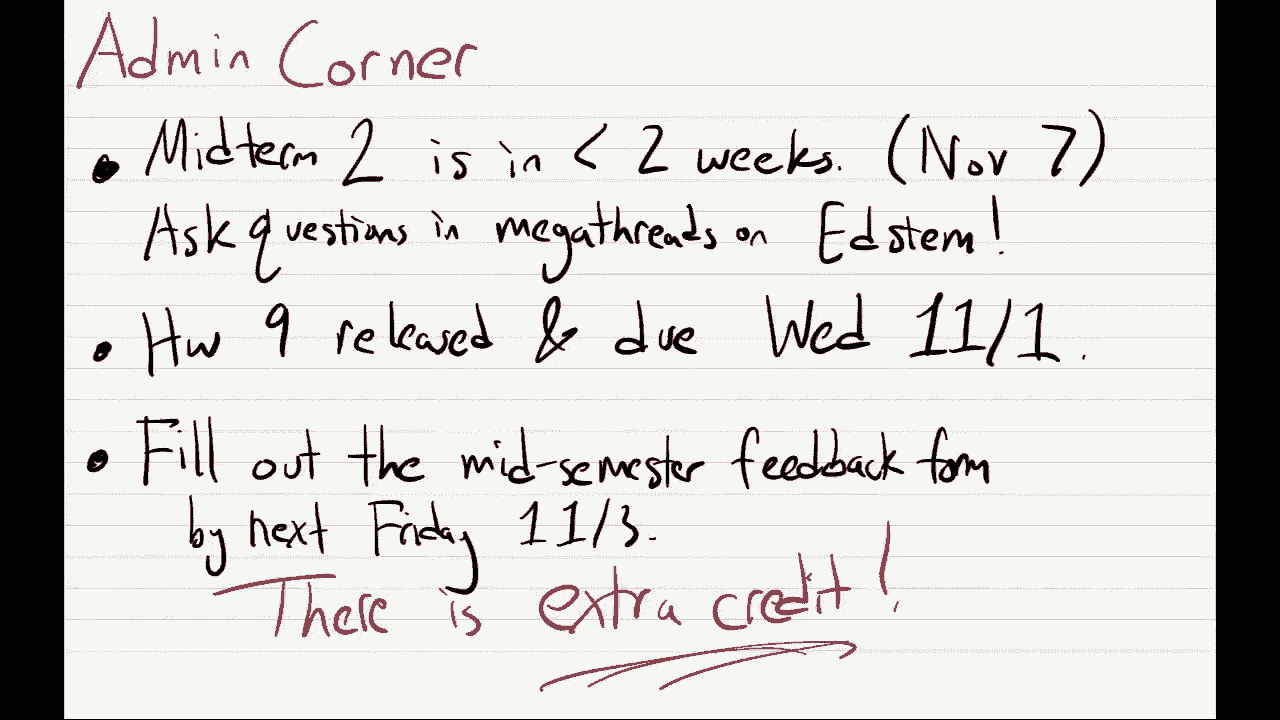 Admin Corner
• Midterm 2 is in < 2 weeks. (Nov 7)
Ask questions in megathreads on Edstem!
• Hw 9 released & due Wed 11/1.
• Fill out the mid-semester feedback form
by next Friday 11/3.
There is extra credit!